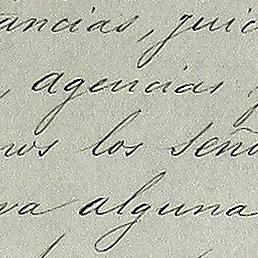 ancias, juic
, agencias y
ros los seño
va alguna